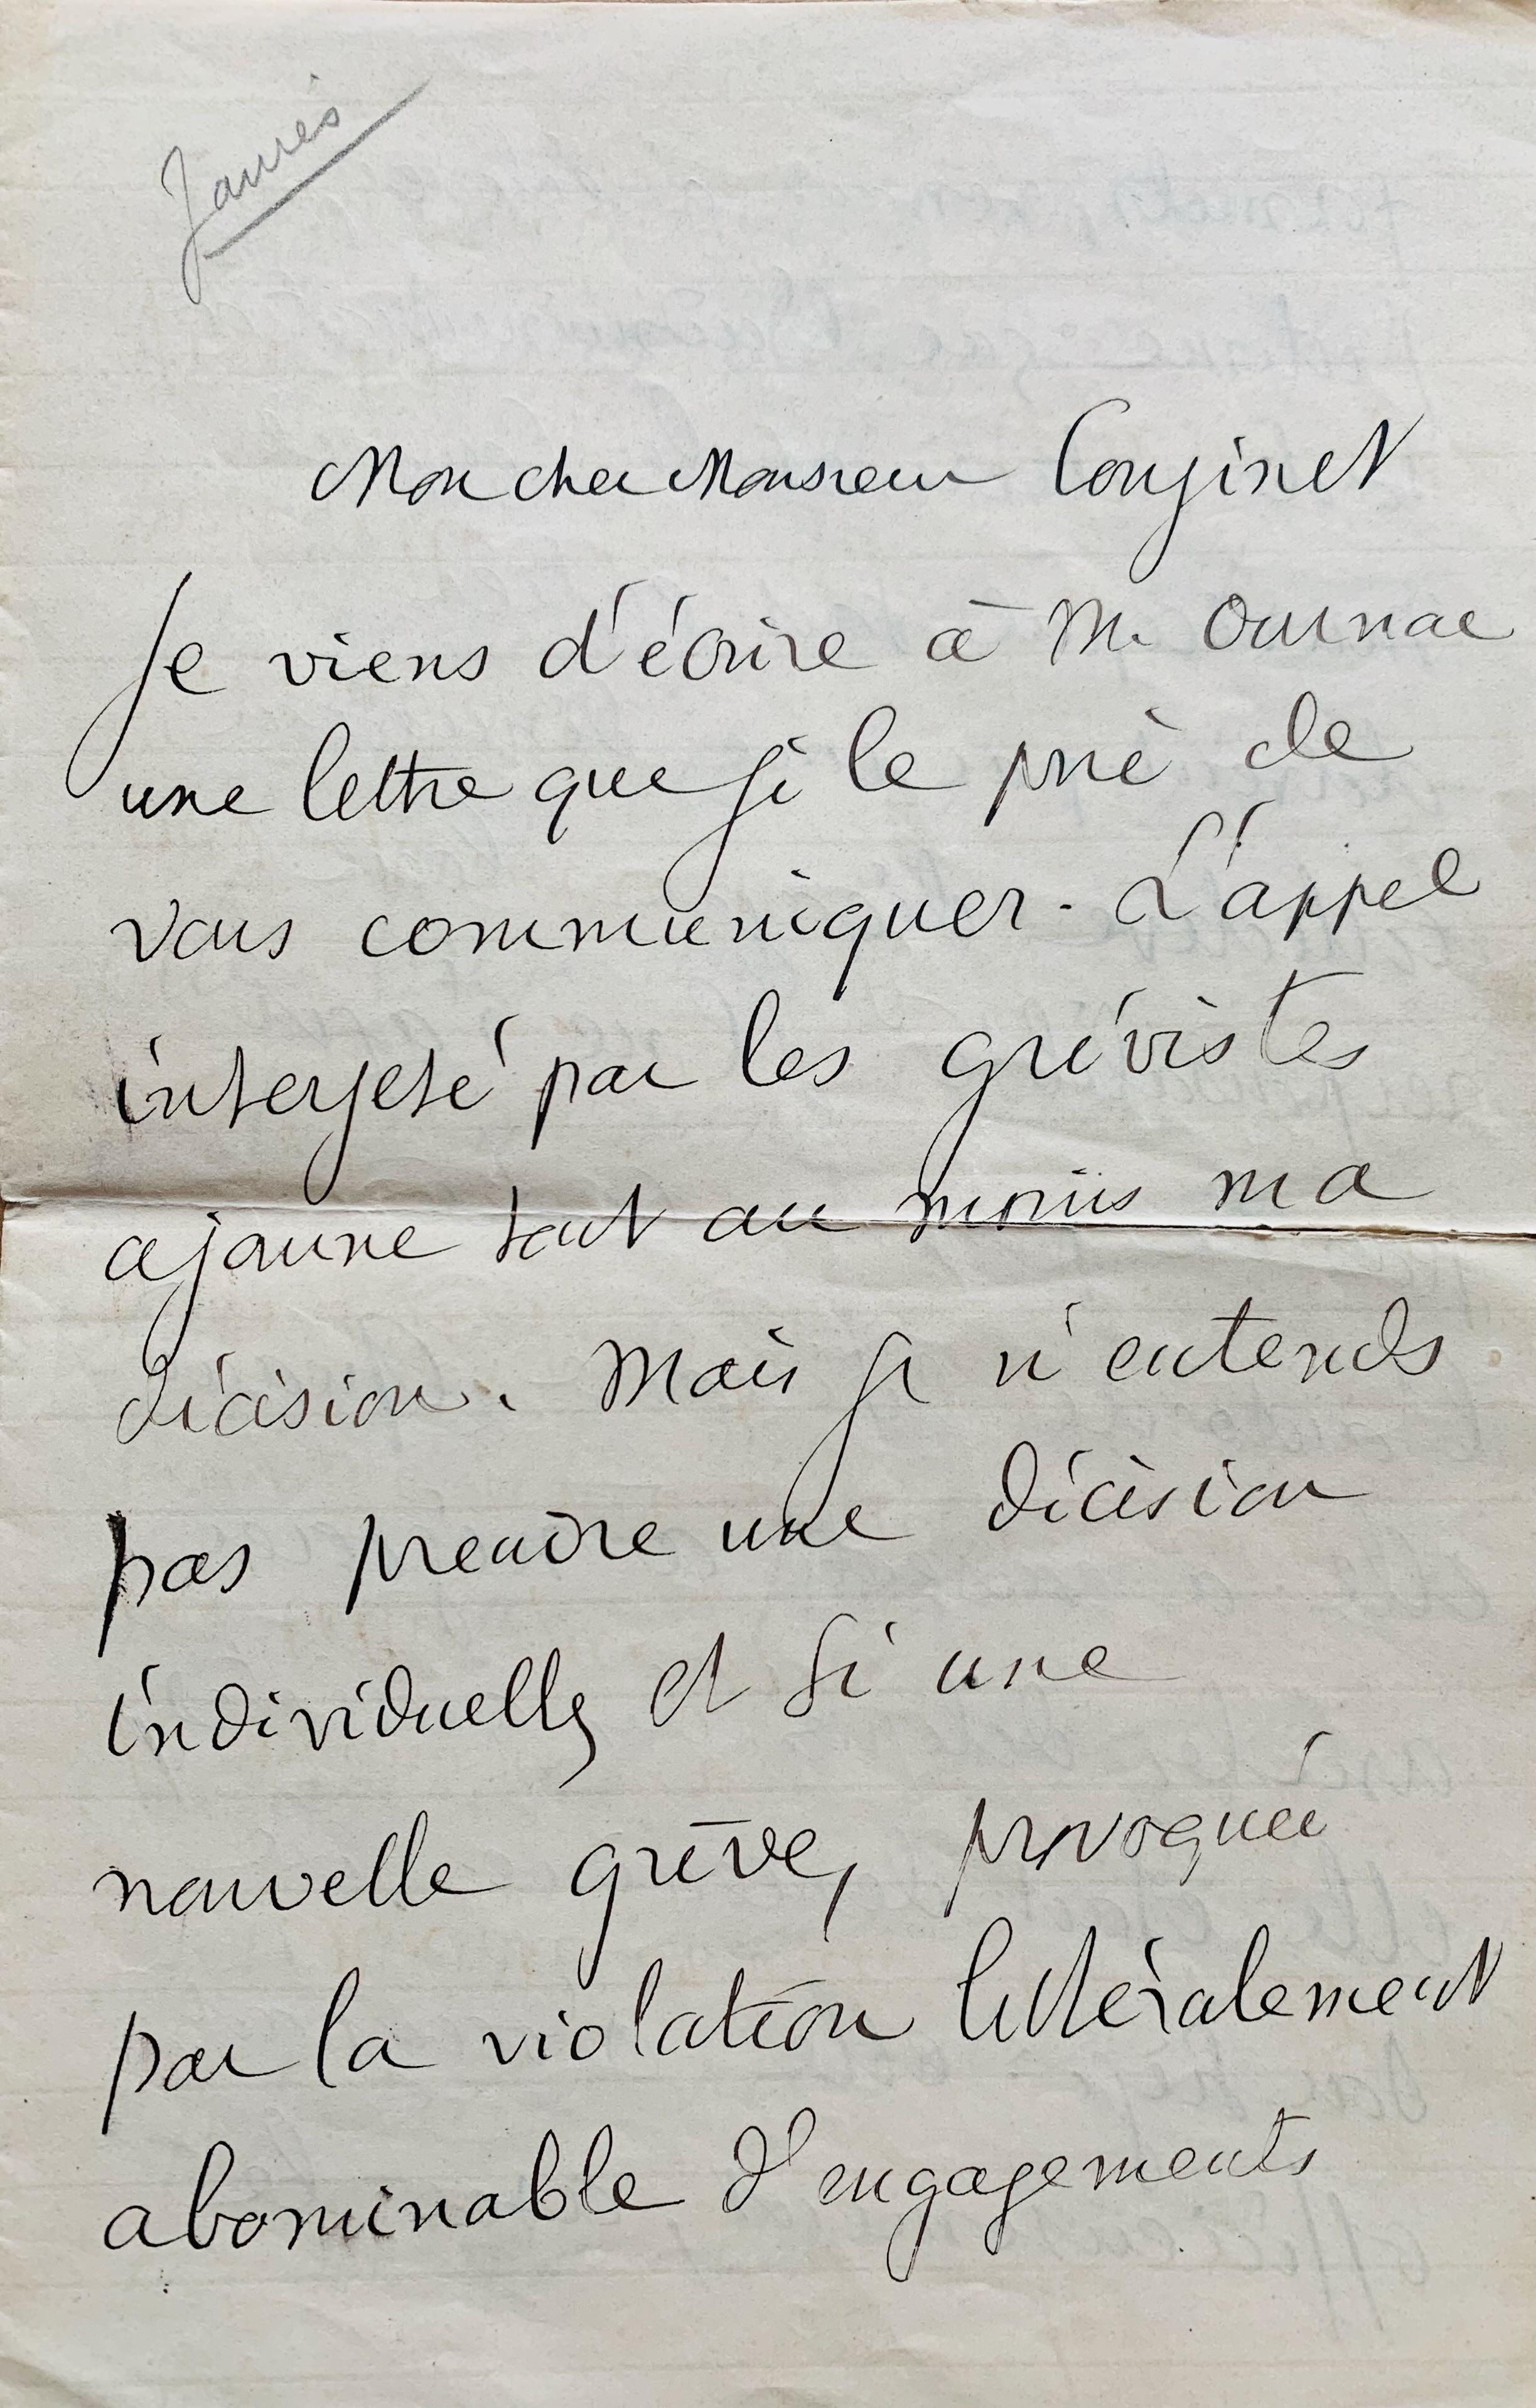 Jaurès
Mon cher Monsieur Couzinet
Je viens d'écrire à M. Ournac
une lettre que je le prie de
vous communiquer. L'appel
interjeté par les grévistes
ajourne tout au moins ma
décision. Mais je n'entends
pas prendre une décision
individuelle, et si une
nouvelle grève, provoquée
par la violation littéralement
abominable d'engagements